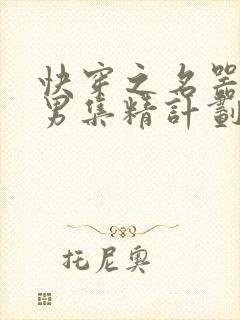 快穿之名器
男集精計劃
托尼奧